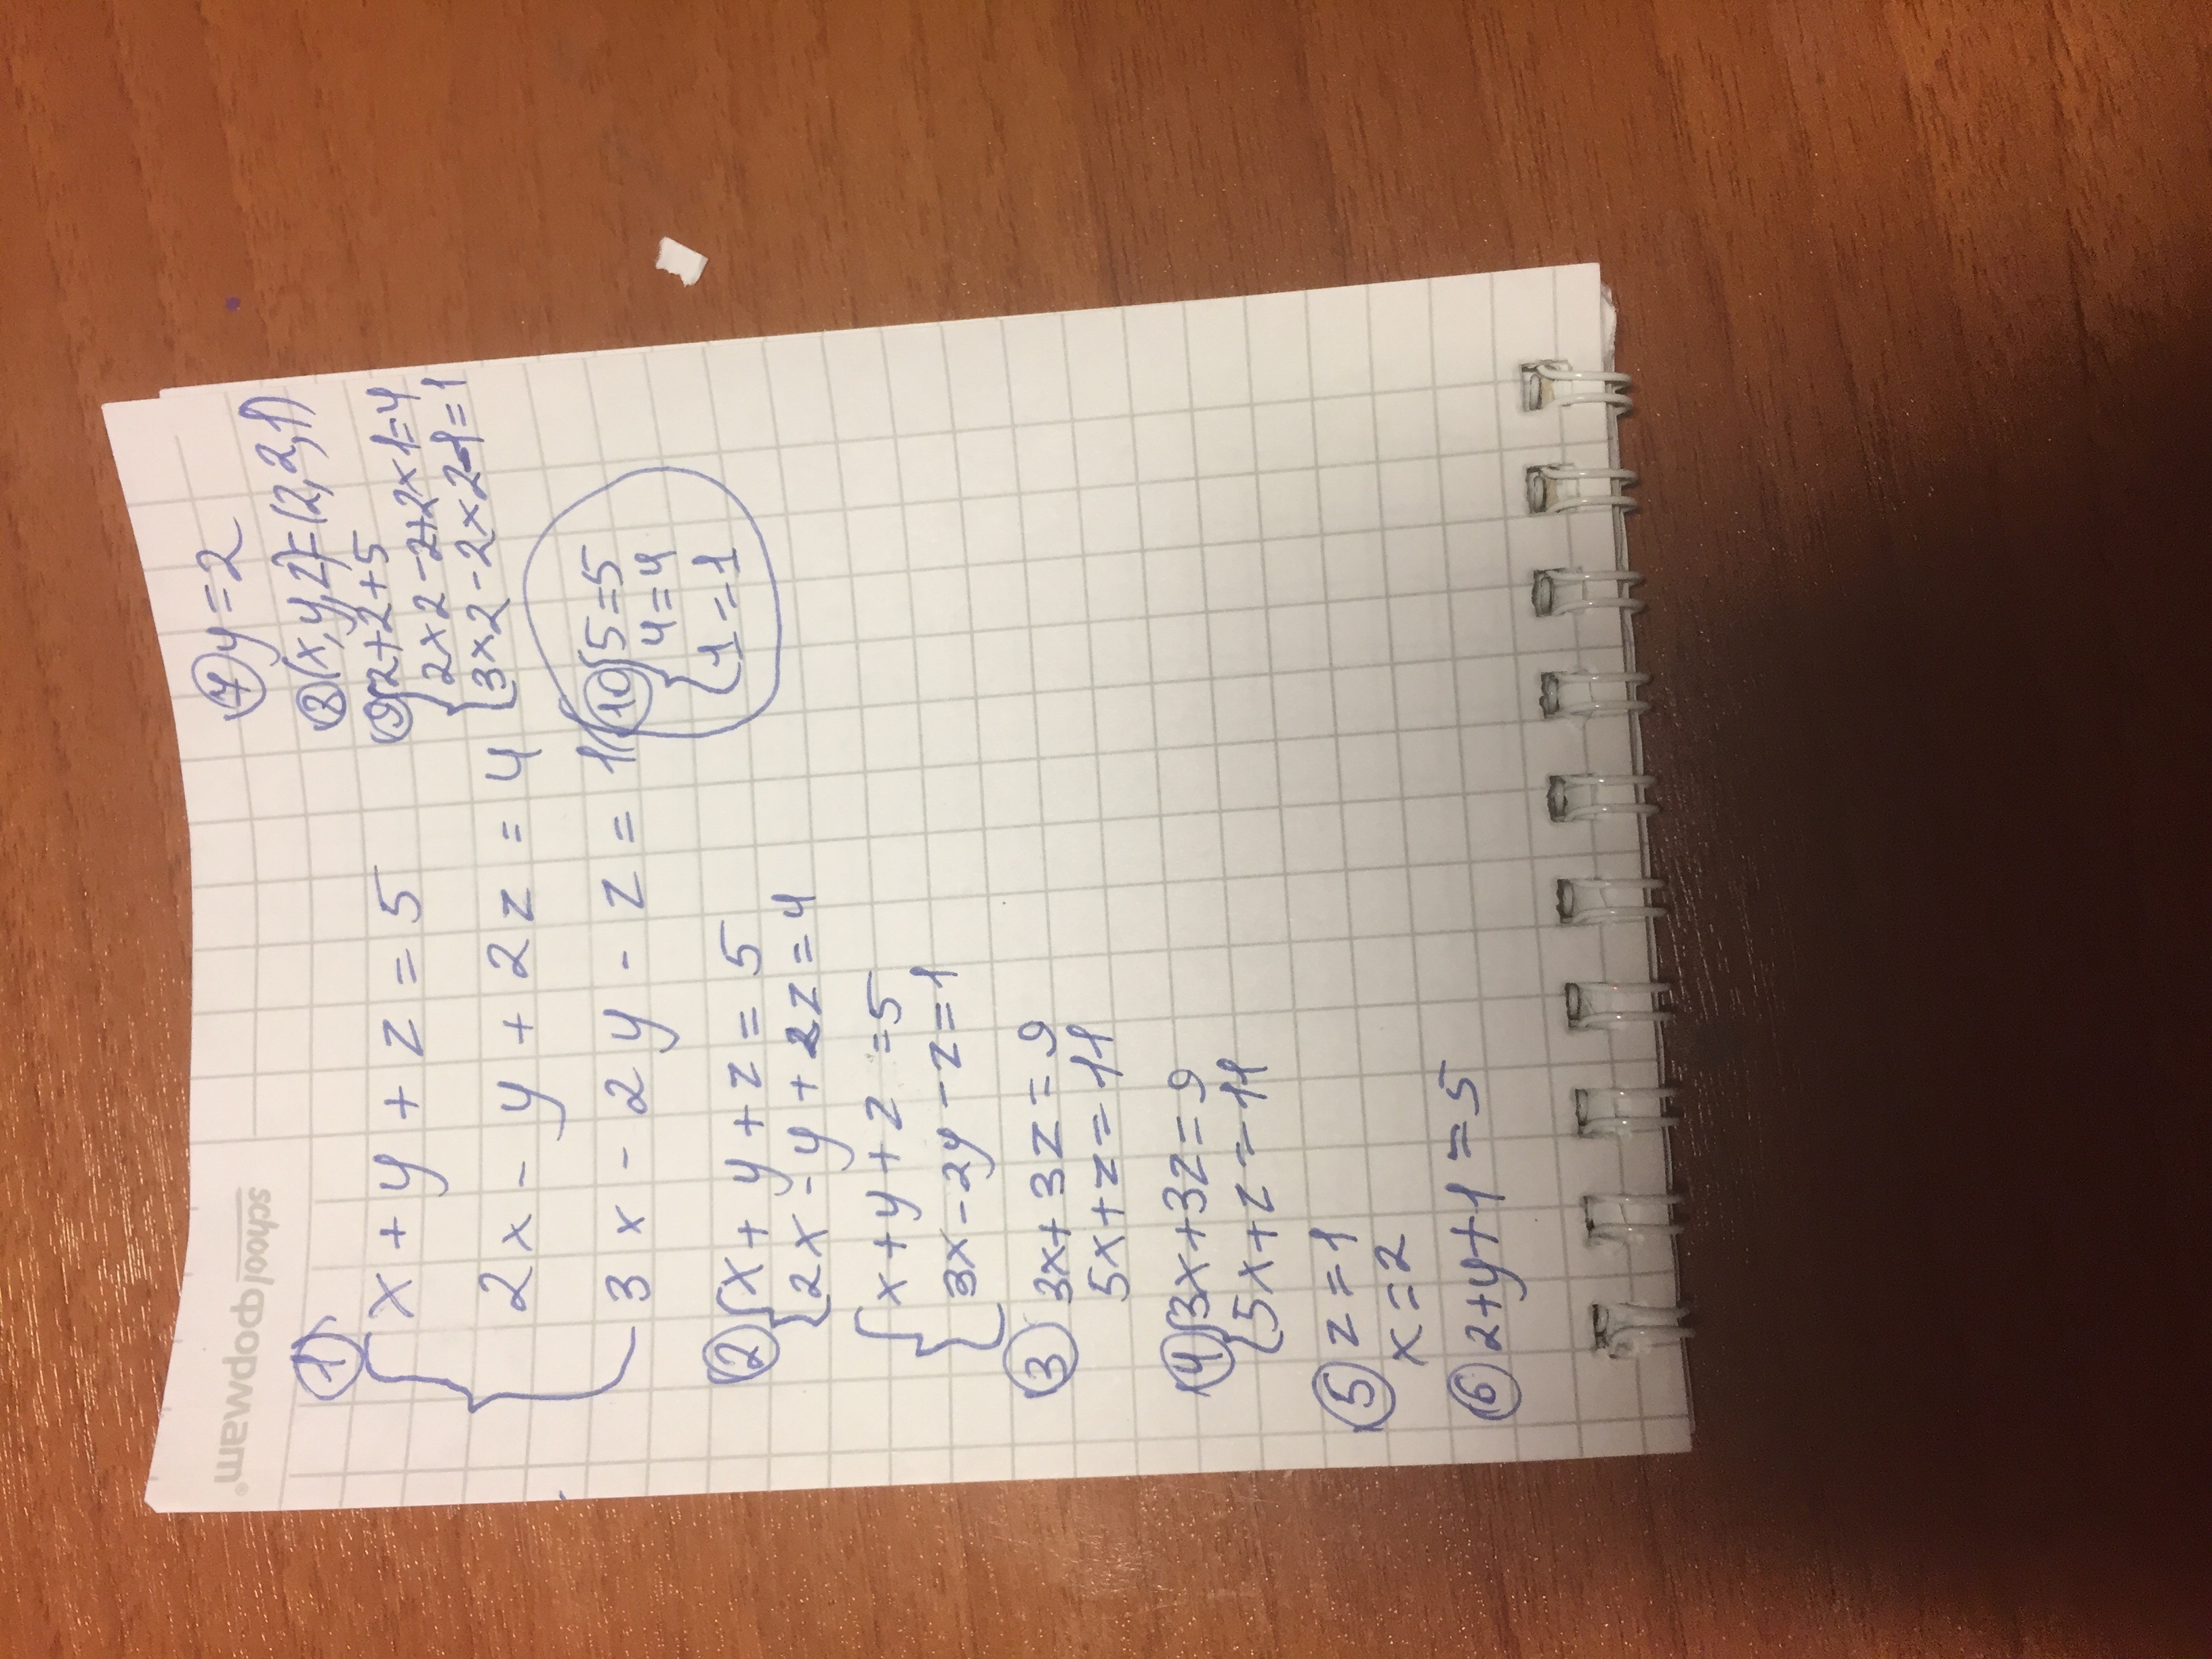 schoolформат
① x + y + z = 5
2x - y + 2z = 4
3x - 2y - z = 1
② x + y + z = 5
2x - y + 2z = 4
x + y + z = 5
3x - 2y - z = 1
③ 3x + 3z = 9
5x + z = 11
④ 3x + 3z = 9
5x + z = 11
⑤ z = 1
x = 2
⑥ 2 + y + 1 = 5
⑦ y = 2
⑧ (x, y, z) = (2, 2, 1)
⑨ 2 + 2 + 5
2 x 2 - 2 + 2 x 1 = 4
3 x 2 - 2 x 2 - 1 = 1
⑩ 5 = 5
4 = 4
1 = 1